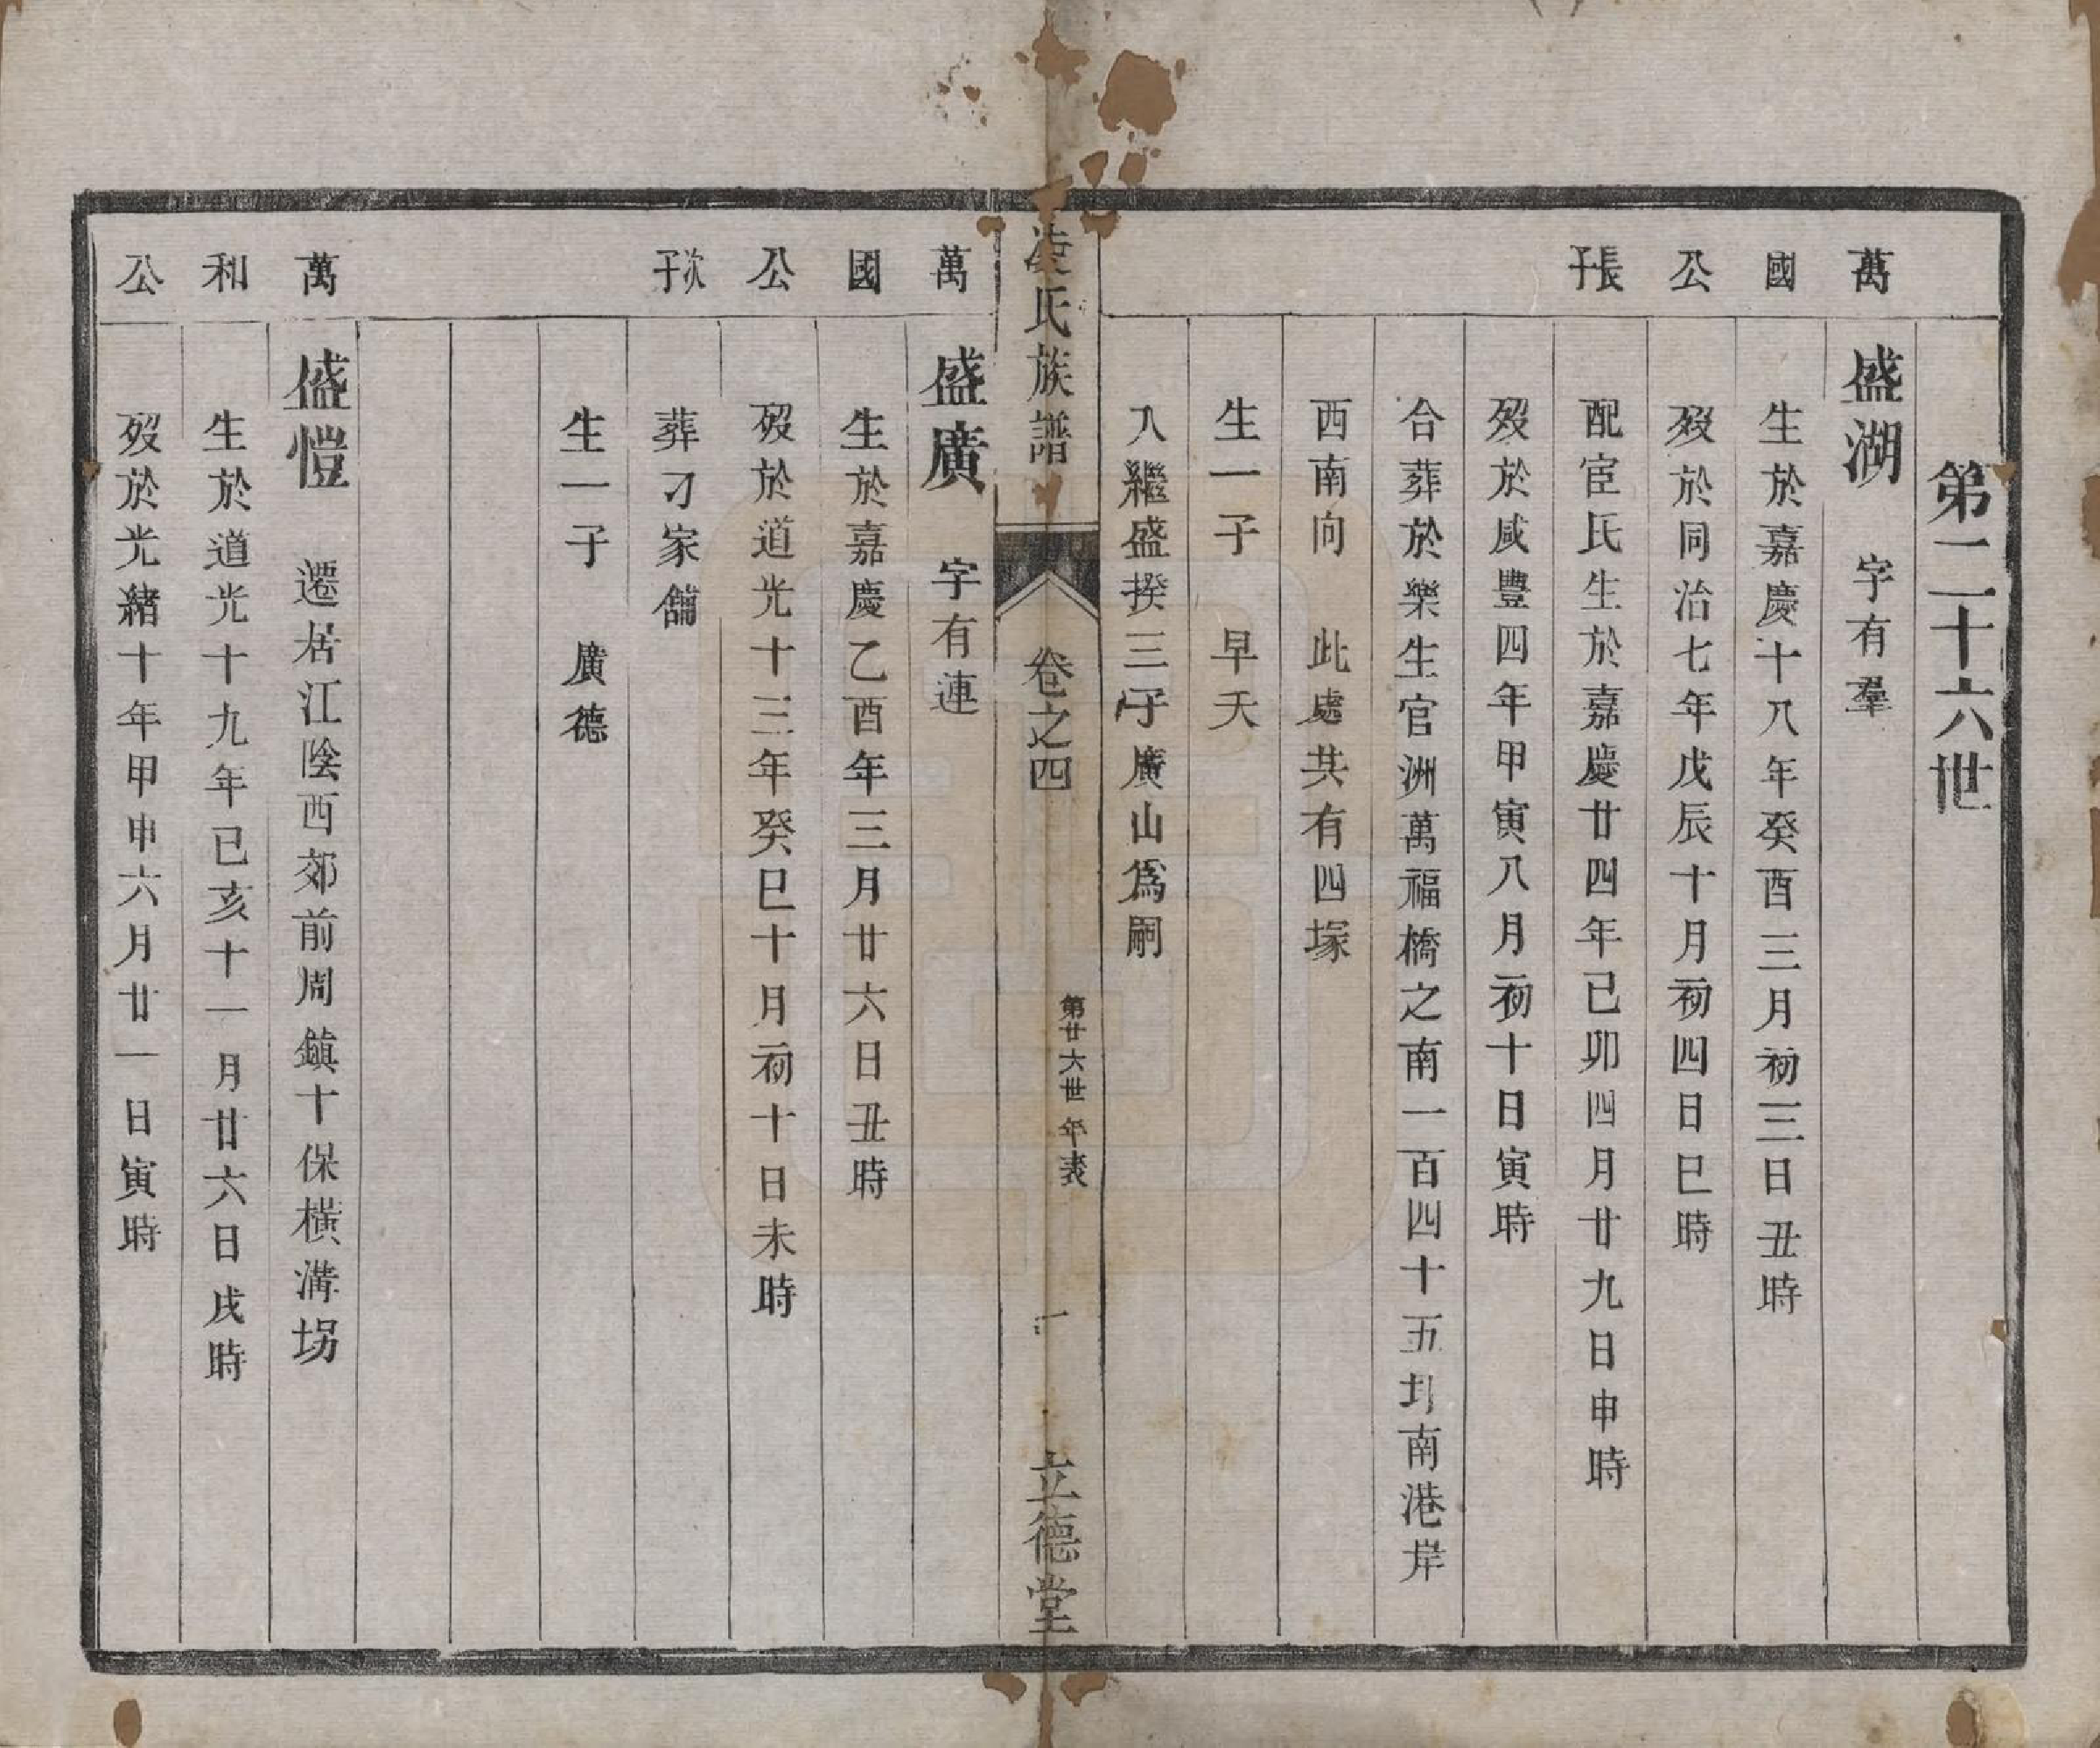 第二十六世
萬 盛湖 字有羣
國 生於嘉慶十八年癸酉三月初三日丑時
公 歿於同治七年戊辰十月初四日巳時
長子 配宦氏生於嘉慶廿四年己卯四月廿九日申時
歿於咸豐四年甲寅八月初十日寅時
合葬於樂生官洲萬福橋之南一百四十五圩南港岸
西南向 此處共有四塚
生一子 早夭
入繼盛揆三子廣山為嗣
凌氏族譜 卷之四 第廿六世年表 一 立德堂
萬 盛廣 字有連
國 生於嘉慶乙酉年三月廿六日丑時
公 歿於道光十三年癸巳十月初十日未時
次子 葬刁家舖
生一子 廣德
萬 盛愷 遷居江陰西郊前周鎮十保橫溝坍
和 生於道光十九年己亥十一月廿六日戌時
公 歿於光緒十年甲申六月廿一日寅時